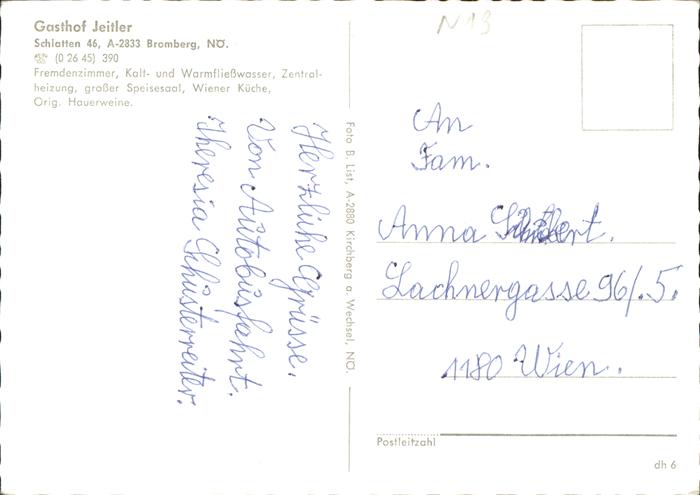 Gasthof Jeitler
Schlatten 46, A-2833 Bromberg, NÖ.
☏ (0 26 45) 390
Fremdenzimmer, Kalt- und Warmfließwasser, Zentral-
heizung, großer Speisesaal, Wiener Küche,
Orig. Hauerweine.
Herzliche Grüsse.
Von Autobusfahrt.
Theresia Schusterreiter.
Foto B. List, A-2880 Kirchberg a. Wechsel, NÖ.
N13
An
Fam.
Anna
Lachnergasse 96/.5.
1180 Wien.
Postleitzahl
dh 6